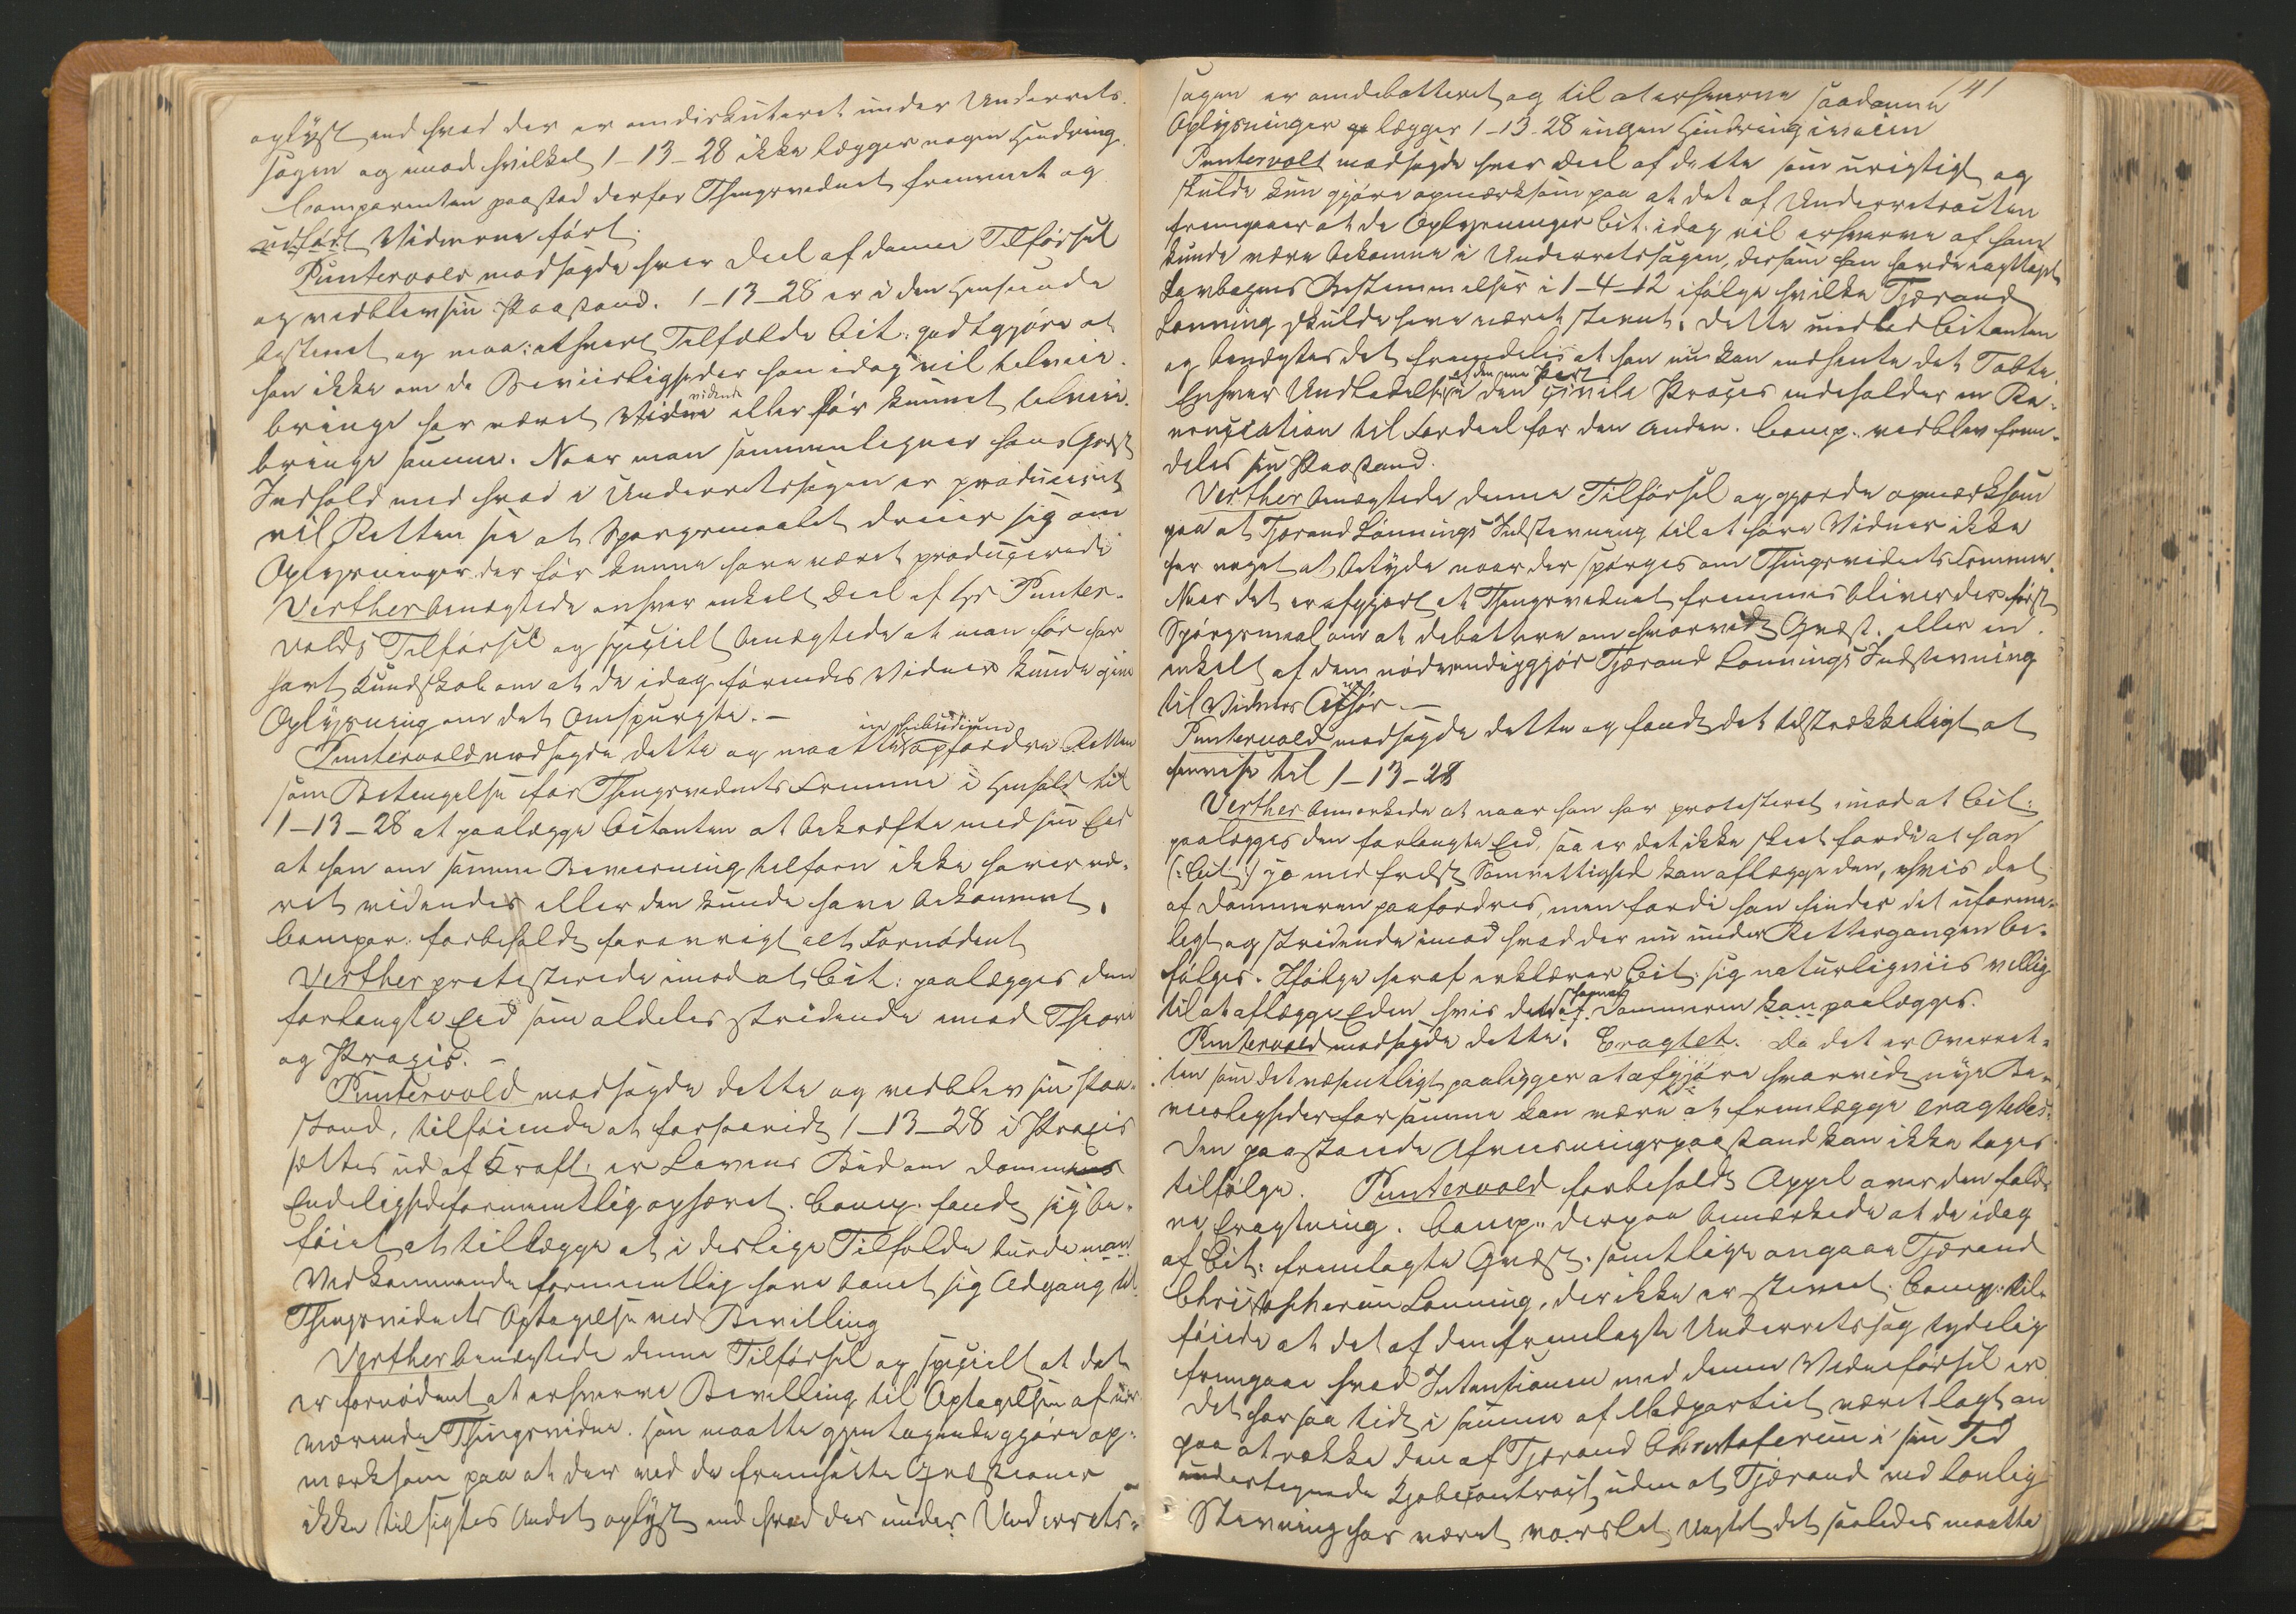 oplyst end hvad der er omdiskuteret under Underrets-
sagen og imod hvilket 1-13-28 ikke lægger nogen Hindring.
Comparenten paastod derfor Thingsvidnet fremmet og
udført Vidnerne ført.
Puntervold modsagde hver Deel af denne Tilførsel
og vedblev sin Paastand. 1-13-28 er i den Henseende
bestemt og maa i ethvert Tilfælde Cit: godtgjøre at
han ikke om de Beviisligheder han idag vil tilveie-
bringe har været Vidne vidende eller før kunnet tilveie-
bringe samme. Naar man sammenligner hans Qvæst
Indhold med hvad i Underretssagen er produceret
vil Retten see at Spørgsmaalet dreier sig om
Oplysninger der før kunne have været producerede
Verther benægtede enhver enkelt Deel af Hr Punter-
volds Tilførsel og specielt benægtede at man før har
havt Kundskab om at de idag førendes Vidner kunde give
Oplysning om det Omspurgte. -
Puntervold modsagde dette og maatte in subsidium opfordre Retten
som Betingelse for Thingsvidnets Fremme i Henhold til
1-13-28 at paalægge Citanten at bekræfte med sin Eed
at han om samme Beviisning tilforn ikke haver væ-
ret vidende eller den kunde have bekommet.
Compar: forbeholdt forøvrigt alt Fornødent
Verther protesterede imod at Cit: paalægges den
forlangte Eed som aldeles stridende imod Theori
og Praxis. -
Puntervold modsagde dette og vedblev sin Paa-
stand, tilføiende at forsaavidt 1-13-28 i Praxis
sættes ud af Kraft, er Lovens Bud om Dommens
Endelighed formentlig ophævet. Comp. fandt sig be-
føiet at tillægge at i deslige Tilfælde burde man
Vedkommende formentlig have banet sig Adgang til
Thingsvidnets Optagelse ved Bevilling
Verther benægtede denne Tilførsel og specielt at det
er fornødent at erhverve Bevilling til Optagelsen af nær-
værende Thingsvidne. Han maatte gjentagende gjøre op-
mærksom paa at der ved de fremsatte Qvæstioner
ikke tilsigtes Andet oplyst end hvad der under Underrets-
141
sagen er omdebatteret og til at erhverve saadanne
Oplysninger lægger 1-13-28 ingen Hindring iveien
Puntervold modsagde hver Deel af dette som urigtigt og
skulde kun gjøre opmærksom paa at det af Underretsacten
fremgaar at de Oplysninger Cit. idag vil erhverve af ham
kunde være bekomne i Underretssagen, dersom han havde iagttaget
Lovbogens Bestemmelser i 1-4-12 ifølge hvilke Tjerand
Lønning skulde have været stevnt. Dette undlod Citanten
og benægtes det fremdeles at han nu kan indhente det Tabte.
Enhver Undladelse af den ene Part i den civile Proces indeholder en Re-
nunciation til Fordeel for den Anden. Comp. vedblev frem-
deles sin Paastand.
Verther benægtede denne Tilførsel og gjorde opmærksom
paa at Tjerand Lønnings Indstevning til at høre Vidner ikke
har noget at betyde naar der spørges om Thingsvidnets Fremme.
Naar det er afgjort at Thingsvidnet fremmes bliver der først
Spørgsmaal om at debattere om hvorvidt Qvæst. eller en
enkelt af dem nødvendiggjør Tjerand Lønnings Indstevning
til Vidners Afhør. -
Puntervold modsagde dette og fandt det tilstrækkeligt at
henvise til 1-13-28
Verther bemerkede at naar han har protesteret imod at Cit:
paalægges den forlangte Eed, saa er det ikke skeet fordi at han
(: Cit :) jo med fredst Samvittighed kan aflægge den, hvis det
af Dommeren paafordres, men fordi han finder det uforme-
ligt og stridende imod hvad der nu under Rettergangen be-
følges. Ifølge heraf erklærer Cit: sig naturligviis villig
til at aflægge Eden hvis det af Dommeren kan paalægges.
Puntervold modsagde dette. Eragtet. Da det er Overret-
ten som det væsentligt paaligger at afgjøre hvorvidt nye Be-
viisligheder for samme kan være at fremlægge eragtedes:
Den paastaaede Afviisningspaastand kan ikke tages
tilfølge. Puntervold forbeholdt Appel over den fald-
ne Eragtning. Comp. derpaa bemærkede at de idag
af Cit: fremlagte Qvæst. samtlige angaae Tjerand
Christophersen Lønning, der ikke er stevnt. Comp. til-
føiede at det af den fremlagte Underretssag tydelig
fremgaar hvad Intentionen med denne Vidneførsel er
Det har saa tidt i samme af Modpartiet været lagt an
paa at rokke den af Tjerand Christofersen i sin Tid
undertegnede Kjøbecontract, uden at Tjerand ved lovlig
Stevning har været varslet. Uagtet det saaledes maatte